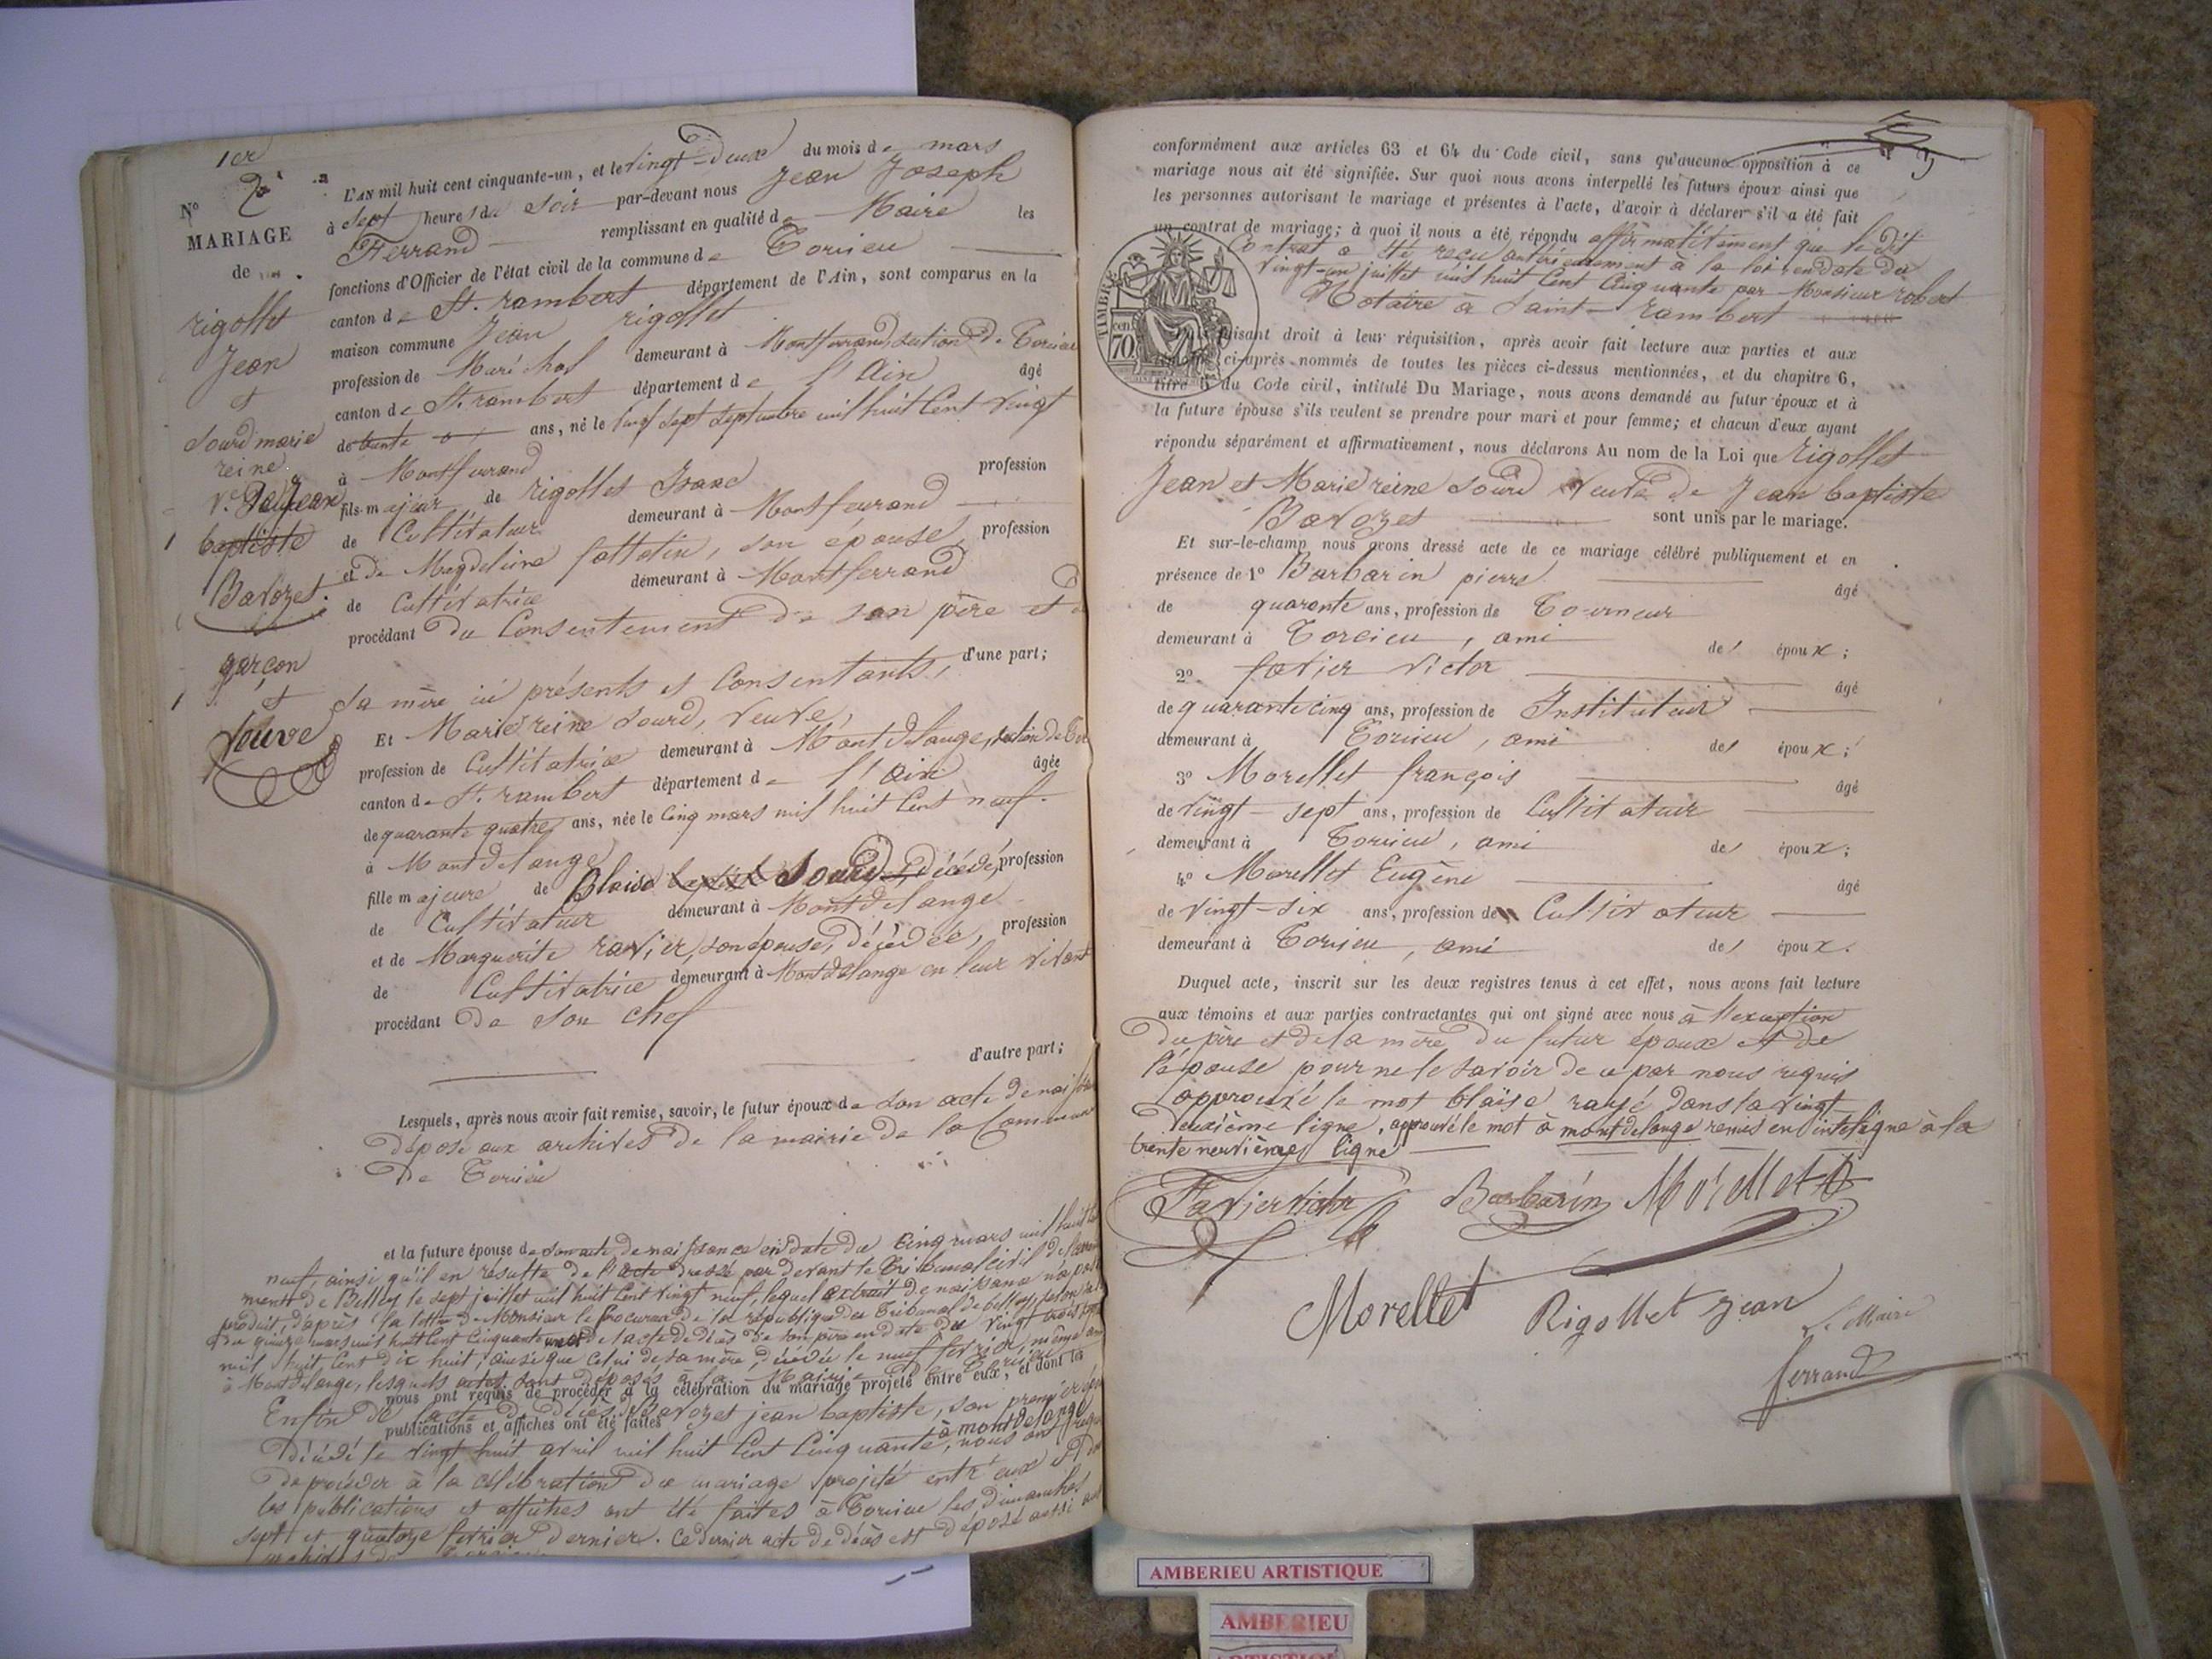 1er
N° 2
MARIAGE
de
rigollet
Jean
et
Sourd marie
reine
Ve Jean
baptiste
Bavozet.
garçon
et
Veuve
L'AN mil huit cent cinquante-un, et le vingt-deux du mois de mars
à sept heures du soir par-devant nous Jean Joseph
Ferrand remplissant en qualité de Maire les
fonctions d'Officier de l'état civil de la commune de Torcieu
canton de St. rambert département de l'Ain, sont comparus en la
maison commune Jean rigollet
profession de Maréchal demeurant à Montferrand, section de Torcieu
canton de St. rambert département de l'Ain âgé
de trente ans, né le vingt sept septembre mil huit Cent vingt
à Montferrand
fils majeur de rigollet Isaac profession
de Cultivateur demeurant à Montferrand
et de Magdeleine fattatin, son épouse, profession
de Cultivatrice demeurant à Montferrand
procédant du Consentement de son père et de
sa mère ici présents et Consentants, d'une part;
Et Marie reine Sourd, veuve
profession de Cultivatrice demeurant à Montdelange, section de Tor
canton de St. rambert département de l'Ain âgée
de quarante quatre ans, née le Cinq mars mil huit Cent neuf.
à Montdelange
fille majeure de Blaise Sourd, décédé, profession
de Cultivateur demeurant à Montdelange
et de Marguerite ravier, son épouse, décédée, profession
de Cultivatrice demeurant à Montdelange en leur vivant
procédant de son chef
d'autre part;
Lesquels, après nous avoir fait remise, savoir, le futur époux de son acte de naissance
déposé aux archives de la mairie de la Commune
de Torcieu
et la future épouse de son acte de naissance en date du Cinq mars mil huit
neuf, ainsi qu'il en résulte de l'acte dressé par devant le Tribunal civil de
ment de Belley le sept juillet mil huit Cent vingt neuf, lequel extrait de naissance n'a pas
produit, d'après la lettre de Monsieur le Procureur de la république du Tribunal de belley,
du quinze mars mil huit Cent Cinquante de l'acte de décès de son père en date du vingt trois
mil huit Cent dix huit, ainsi que celui de sa mère, décédée le neuf février, même
à Montdelange, lesquels actes sont déposés à la Mairie Torcieu
nous ont requis de procéder à la célébration du mariage projeté entre eux, et dont les
Enfin de l'acte de décès de Bavozet jean baptiste, son premier
publications et affiches ont été faites à montdelange
décédé le vingt huit avril mil huit Cent Cinquante, nous ont
de procéder à la célébration du mariage projeté entr'eux et
les publications et affiches ont été faites à Torcieu les dimanches
sept et quatorze février dernier. Ce dernier acte de décès est déposé aussi
conformément aux articles 63 et 64 du Code civil, sans qu'aucune opposition à ce
mariage nous ait été signifiée. Sur quoi nous avons interpellé les futurs époux ainsi que
les personnes autorisant le mariage et présentes à l'acte, d'avoir à déclarer s'il a été fait
un contrat de mariage; à quoi il nous a été répondu affirmativement que le dit
Contrat a été reçu antérieurement à la loi, en date du
vingt-un juillet mil huit Cent Cinquante par Monsieur robert
Notaire à Saint-rambert
TIMBRE
cent.
70
faisant droit à leur réquisition, après avoir fait lecture aux parties et aux
ci-après nommés de toutes les pièces ci-dessus mentionnées, et du chapitre 6,
titre 5 du Code civil, intitulé Du Mariage, nous avons demandé au futur époux et à
la future épouse s'ils veulent se prendre pour mari et pour femme; et chacun d'eux ayant
répondu séparément et affirmativement, nous déclarons Au nom de la Loi que Rigollet
Jean et Marie reine Sourd veuve de Jean baptiste
Bavozet sont unis par le mariage.
Et sur-le-champ nous avons dressé acte de ce mariage célébré publiquement et en
présence de 1° Barbarin pierre âgé
de quarante ans, profession de Tourneur
demeurant à Torcieu, ami des époux;
2° favier Victor âgé
de quarante cinq ans, profession de Instituteur
demeurant à Torcieu, ami des époux;
3° Morellet françois âgé
de vingt-sept ans, profession de Cultivateur
demeurant à Torcieu, ami des époux;
4° Morellet Eugène âgé
de vingt-six ans, profession de Cultivateur
demeurant à Torcieu, ami des époux.
Duquel acte, inscrit sur les deux registres tenus à cet effet, nous avons fait lecture
aux témoins et aux parties contractantes qui ont signé avec nous à l'exception
du père et de la mère du futur époux et de
l'épouse pour ne le savoir de ce par nous requis
approuvé le mot blaise rayé dans la vingt
deuxième ligne, approuvé le mot à montdelange remis en interligne à la
trente neuvième ligne
Favier Victor Barbarin Morellet
Morellet Rigollet Jean Le Maire
ferrand
AMBERIEU ARTISTIQUE
AMBERIEU
ARTISTIQUE